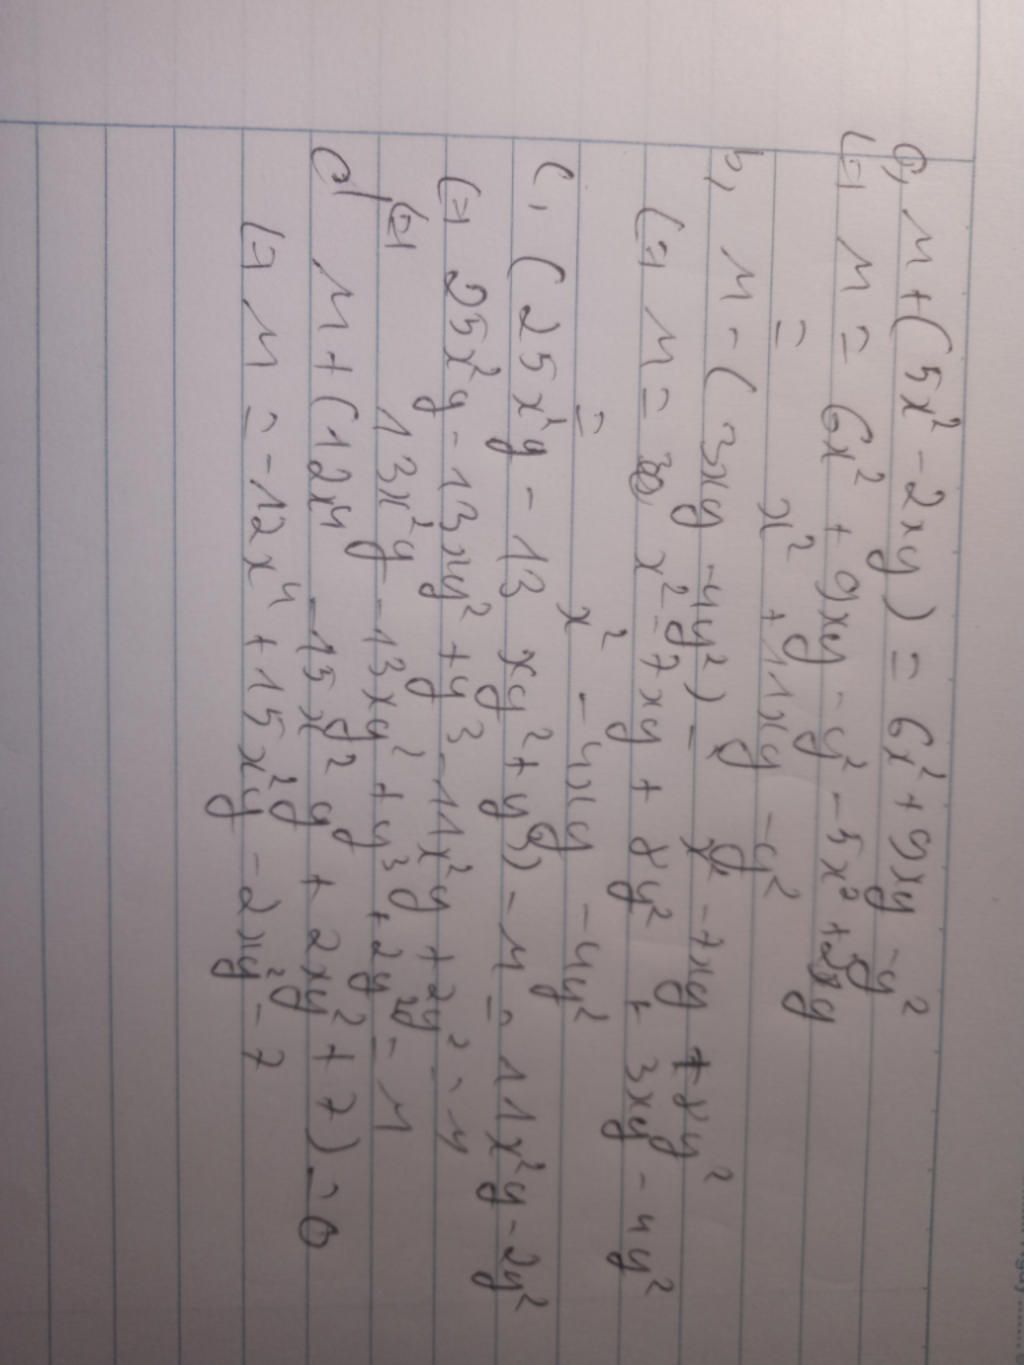 a, M + (5x² - 2xy) = 6x² + 9xy - y²
(=) M = 6x² + 9xy - y² - 5x² + 2xy
= x² + 11xy - y²
b, M - (3xy - 4y²) = x² - 7xy + 8y²
(=) M = x² - 7xy + 8y² + 3xy - 4y²
= x² - 4xy - 4y²
c, (25x²y - 13xy² + y³) - M = 11x²y - 2y²
(=) 25x²y - 13xy² + y³ - 11x²y + 2y² = M
(=) 13x²y - 13xy² + y³ + 2y² = M
d, M + (12x⁴ - 15x²y + 2xy² + 7) = 0
(=) M = -12x⁴ + 15x²y - 2xy² - 7